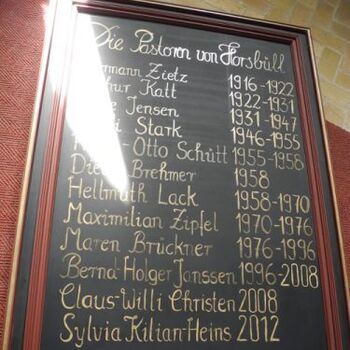 Die Pastoren von Horsbüll
Zietz 1916-1922
Katt 1922-1931
Jensen 1931-1947
Stark 1946-1955
Otto Schütt 1955-1958
Brehmer 1958
Hellmuth Lack 1958-1970
Maximilian Zipfel 1970-1976
Maren Brückner 1976-1996
Bernd-Holger Janssen 1996-2008
Claus-Willi Christen 2008
Sylvia Kilian-Heins 2012